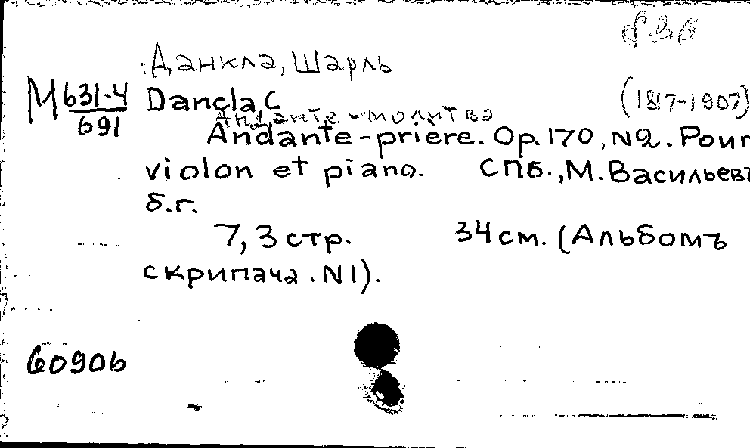 Данкла, Шарль
М 631-4/691 Dancla C (1817-1907)
Анданте-молитва
Andante-priere. Op. 170, N2. Pour
violon et piano. СПБ., М. Васильевъ
б.г.
7, 3 стр. 34 см. (Альбомъ
скрипача. N1).
6090b